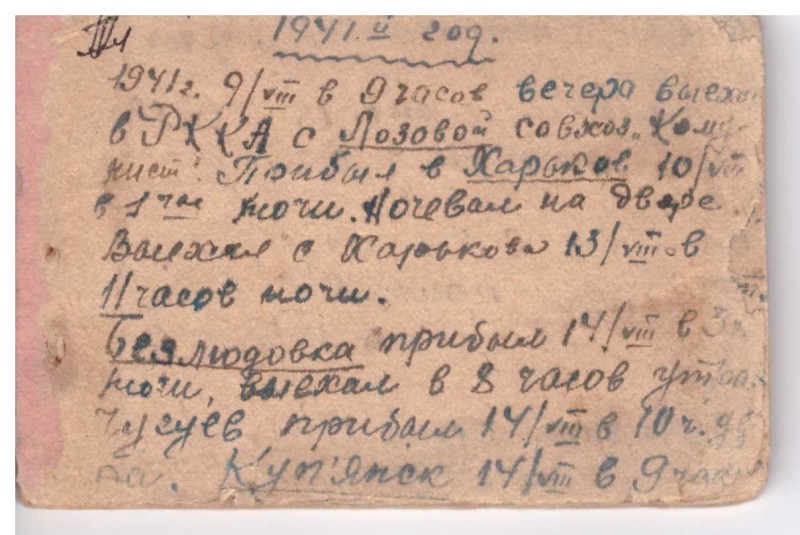 1941.й год.
1941г. 9/VIII в 9 часов вечера выехал
в РККА с Лозовой совхоз „Кому-
нист". Прибыл в Харьков 10/VIII
в 1 час ночи. Ночевал на дворе
Выехал с Харькова 13/VIII в
11 часов ночи.
Безлюдовка прибыл 14/VIII в 3
ночи, выехал в 8 часов утра
Чугуев прибыл 14/VIII в 10 ч.
Куп'янск 14/VIII в 9 часов